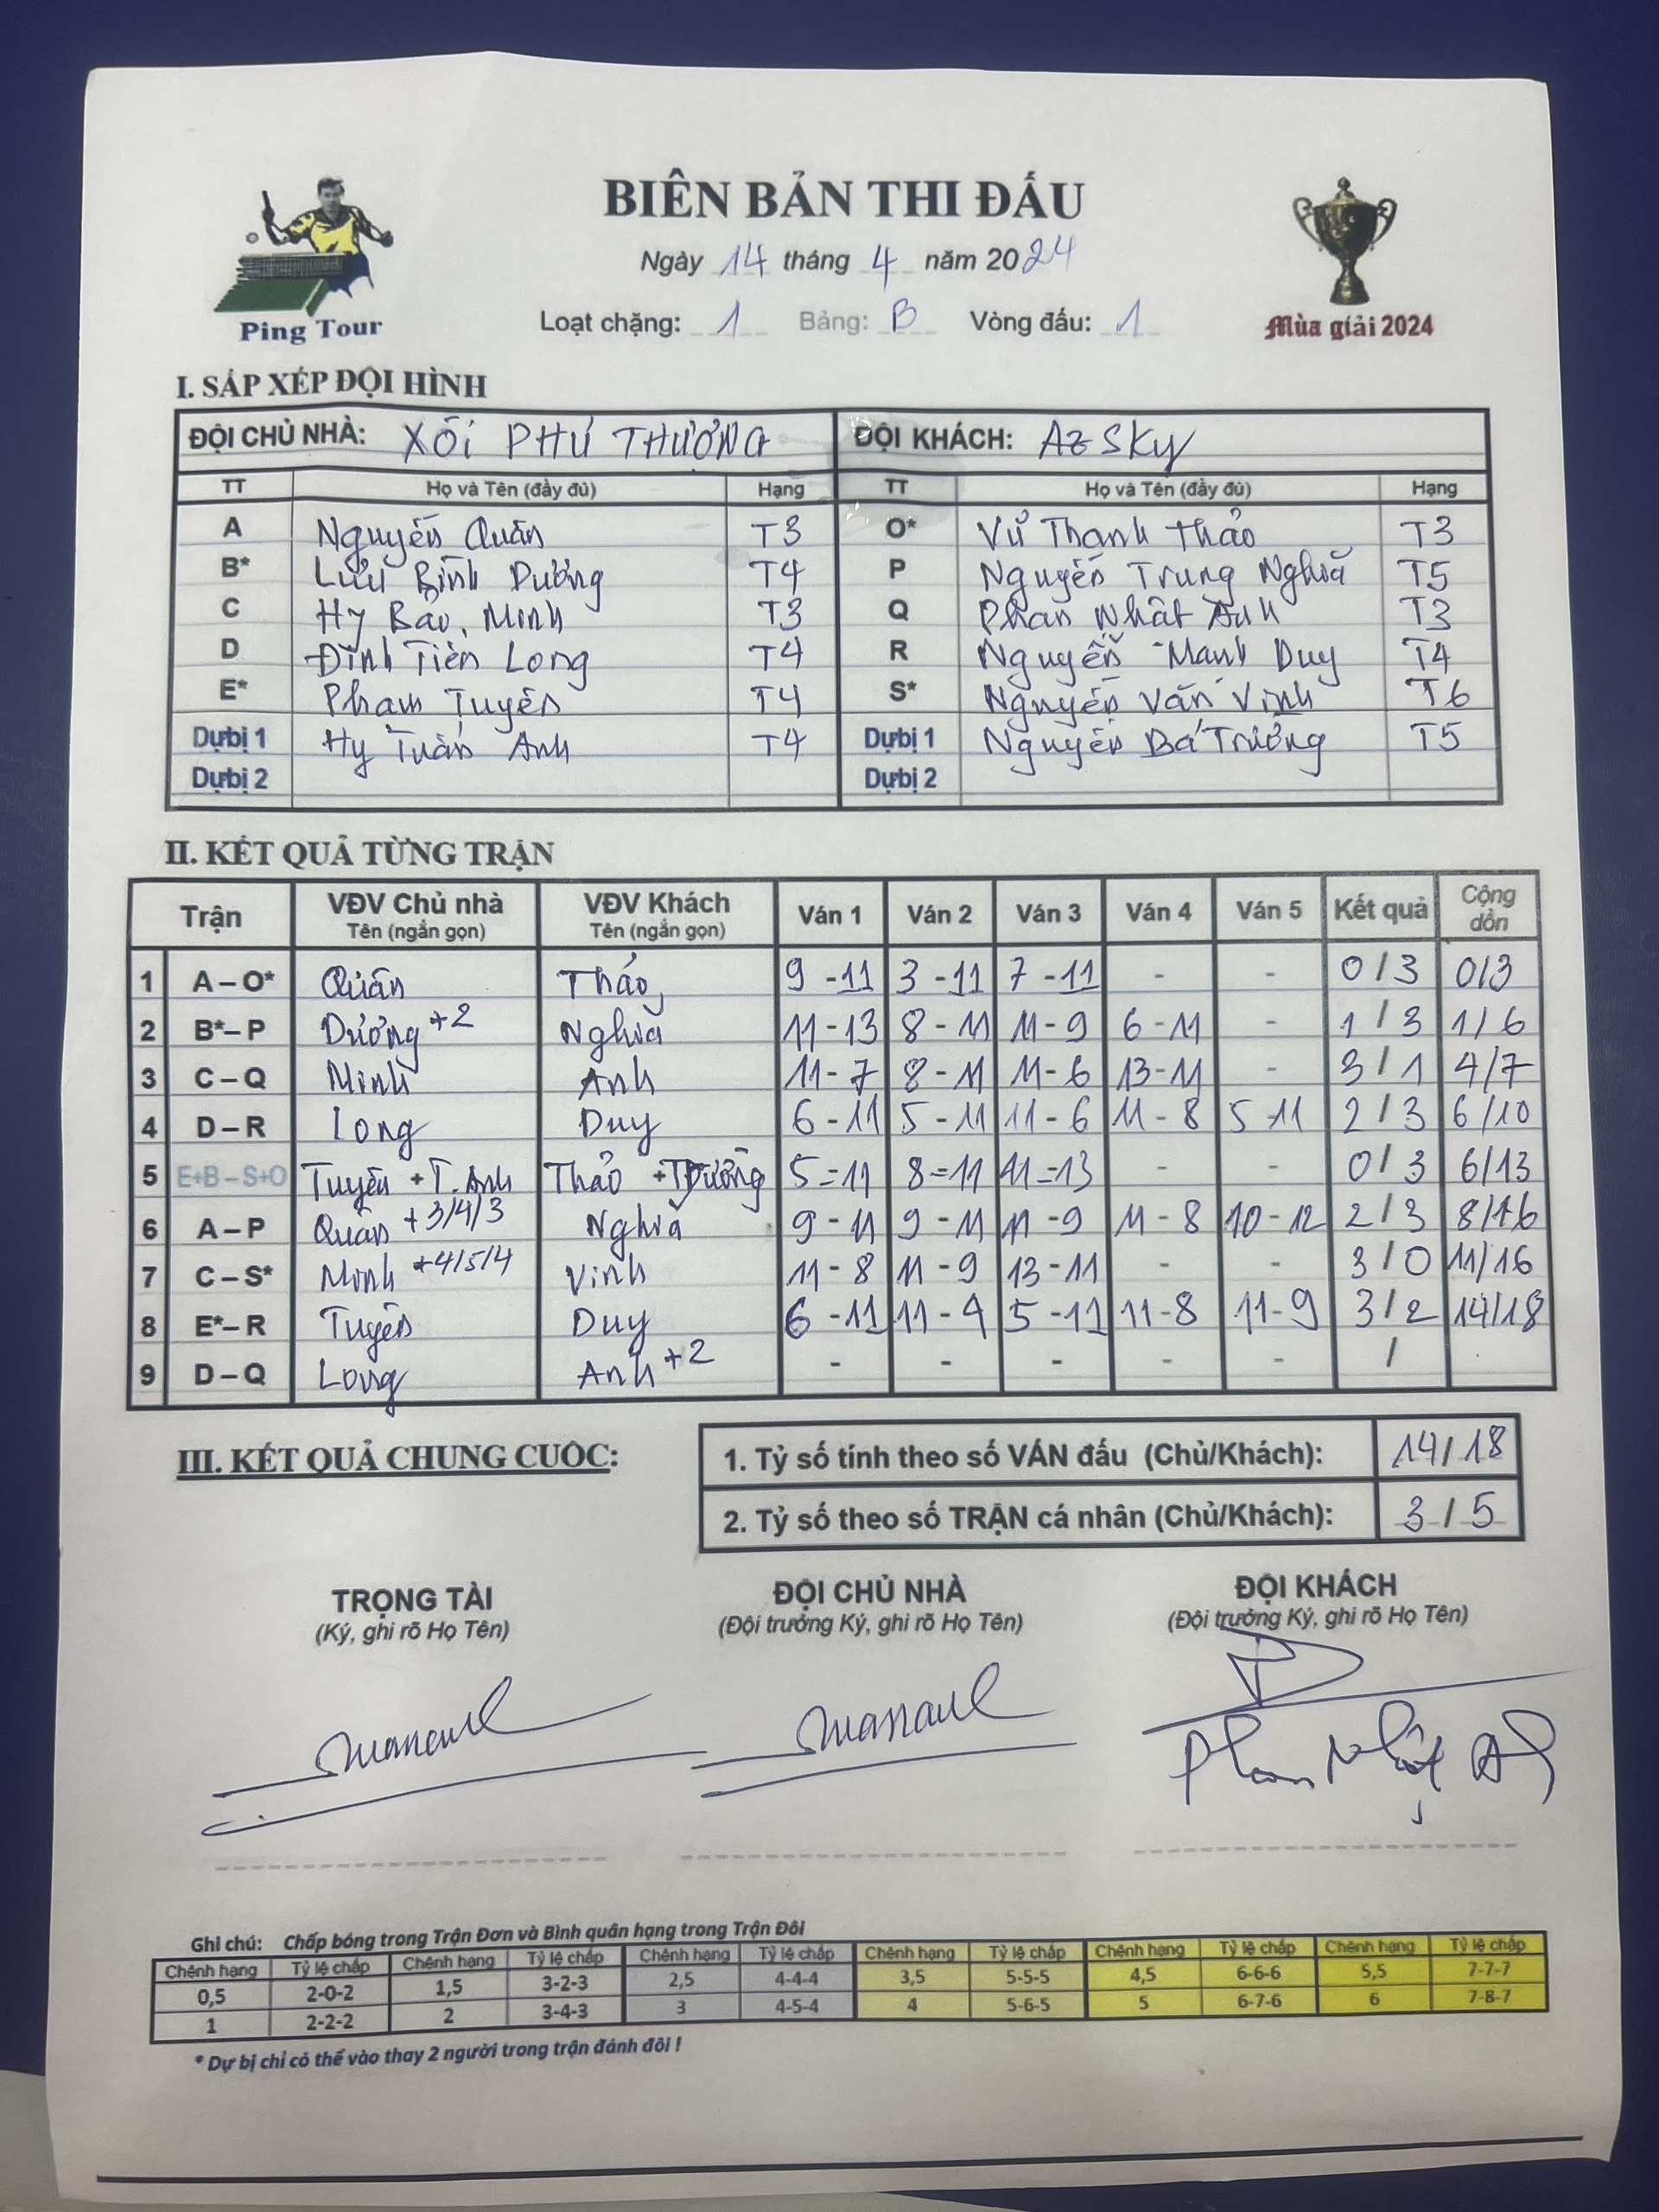 BIÊN BẢN THI ĐẤU
Ngày 14 tháng 4 năm 2024
Loạt chặng: 1 Bảng: B Vòng đấu: 1
Ping Tour
Mùa giải 2024
I. SẮP XẾP ĐỘI HÌNH
ĐỘI CHỦ NHÀ: XÔI PHÚ THƯỢNG ĐỘI KHÁCH: AZSKY
TT Họ và Tên (đầy đủ) Hạng TT Họ và Tên (đầy đủ) Hạng
A Nguyễn Quân T3 O* Vũ Thanh Thảo T3
B* Lưu Bình Dương T4 P Nguyễn Trung Nghĩa T5
C Hy Bảo Minh T3 Q Phan Nhật Anh T3
D Đinh Tiến Long T4 R Nguyễn Mạnh Duy T4
E* Phạm Tuyên T4 S* Nguyễn Văn Vinh T6
Dự bị 1 Hy Tuấn Anh T4 Dự bị 1 Nguyễn Bá Trường T5
Dự bị 2 Dự bị 2
II. KẾT QUẢ TỪNG TRẬN
Trận VĐV Chủ nhà Tên (ngắn gọn) VĐV Khách Tên (ngắn gọn) Ván 1 Ván 2 Ván 3 Ván 4 Ván 5 Kết quả Cộng dồn
1 A – O* Quân Thảo 9 - 11 3 - 11 7 - 11 - - 0 / 3 0/3
2 B* – P Dương +2 Nghĩa 11 - 13 8 - 11 11 - 9 6 - 11 - 1 / 3 1/6
3 C – Q Minh Anh 11 - 7 8 - 11 11 - 6 13 - 11 - 3 / 1 4/7
4 D – R Long Duy 6 - 11 5 - 11 11 - 6 11 - 8 5 - 11 2 / 3 6/10
5 E+B – S+O Tuyên + T. Anh Thảo + Trường 5 - 11 8 - 11 11 - 13 - - 0 / 3 6/13
6 A – P Quân +3/4/3 Nghĩa 9 - 11 9 - 11 11 - 9 11 - 8 10 - 12 2 / 3 8/16
7 C – S* Minh +4/5/4 Vinh 11 - 8 11 - 9 13 - 11 - - 3 / 0 11/16
8 E* – R Tuyên Duy 6 - 11 11 - 4 5 - 11 11 - 8 11 - 9 3 / 2 14/18
9 D – Q Long Anh +2 - - - - - /
III. KẾT QUẢ CHUNG CUỘC:
1. Tỷ số tính theo số VÁN đấu (Chủ/Khách): 14 / 18
2. Tỷ số theo số TRẬN cá nhân (Chủ/Khách): 3 / 5
TRỌNG TÀI ĐỘI CHỦ NHÀ ĐỘI KHÁCH
(Ký, ghi rõ Họ Tên) (Đội trưởng Ký, ghi rõ Họ Tên) (Đội trưởng Ký, ghi rõ Họ Tên)
Phan Nhật Anh
Ghi chú: Chấp bóng trong Trận Đơn và Bình quân hạng trong Trận Đôi
Chênh hạng Tỷ lệ chấp Chênh hạng Tỷ lệ chấp Chênh hạng Tỷ lệ chấp Chênh hạng Tỷ lệ chấp Chênh hạng Tỷ lệ chấp Chênh hạng Tỷ lệ chấp
0,5 2-0-2 1,5 3-2-3 2,5 4-4-4 3,5 5-5-5 4,5 6-6-6 5,5 7-7-7
1 2-2-2 2 3-4-3 3 4-5-4 4 5-6-5 5 6-7-6 6 7-8-7
* Dự bị chỉ có thể vào thay 2 người trong trận đánh đôi !